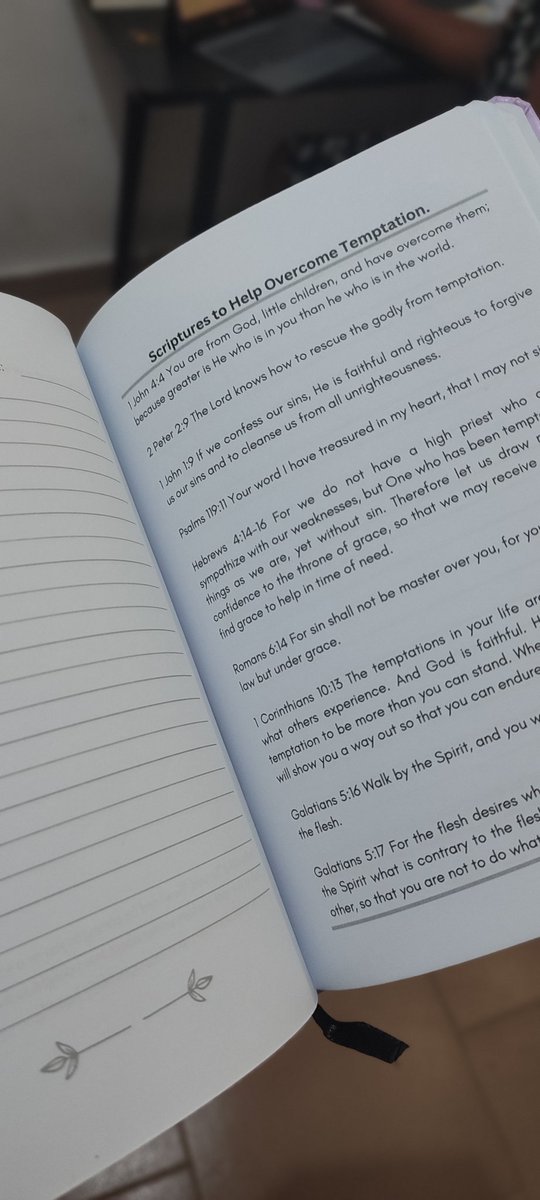 :
Scriptures to Help Overcome Temptation.
1 John 4:4 You are from God, little children, and have overcome them;
because greater is He who is in you than he who is in the world.
2 Peter 2:9 The Lord knows how to rescue the godly from temptation.
1 John 1:9 If we confess our sins, He is faithful and righteous to forgive
us our sins and to cleanse us from all unrighteousness.
Psalms 119:11 Your word I have treasured in my heart, that I may not
Hebrews 4:14-16 For we do not have a high priest who
sympathize with our weaknesses, but One who has been
things as we are, yet without sin. Therefore let us draw
confidence to the throne of grace, so that we may receive
find grace to help in time of need.
Romans 6:14 For sin shall not be master over you, for
law but under grace.
1 Corinthians 10:13 The temptations in your life
what others experience. And God is faithful.
temptation to be more than you can stand.
will show you a way out so that you can endure
Galatians 5:16 Walk by the Spirit, and you
the flesh.
Galatians 5:17 For the flesh desires
the Spirit what is contrary to the
other, so that you are not to do